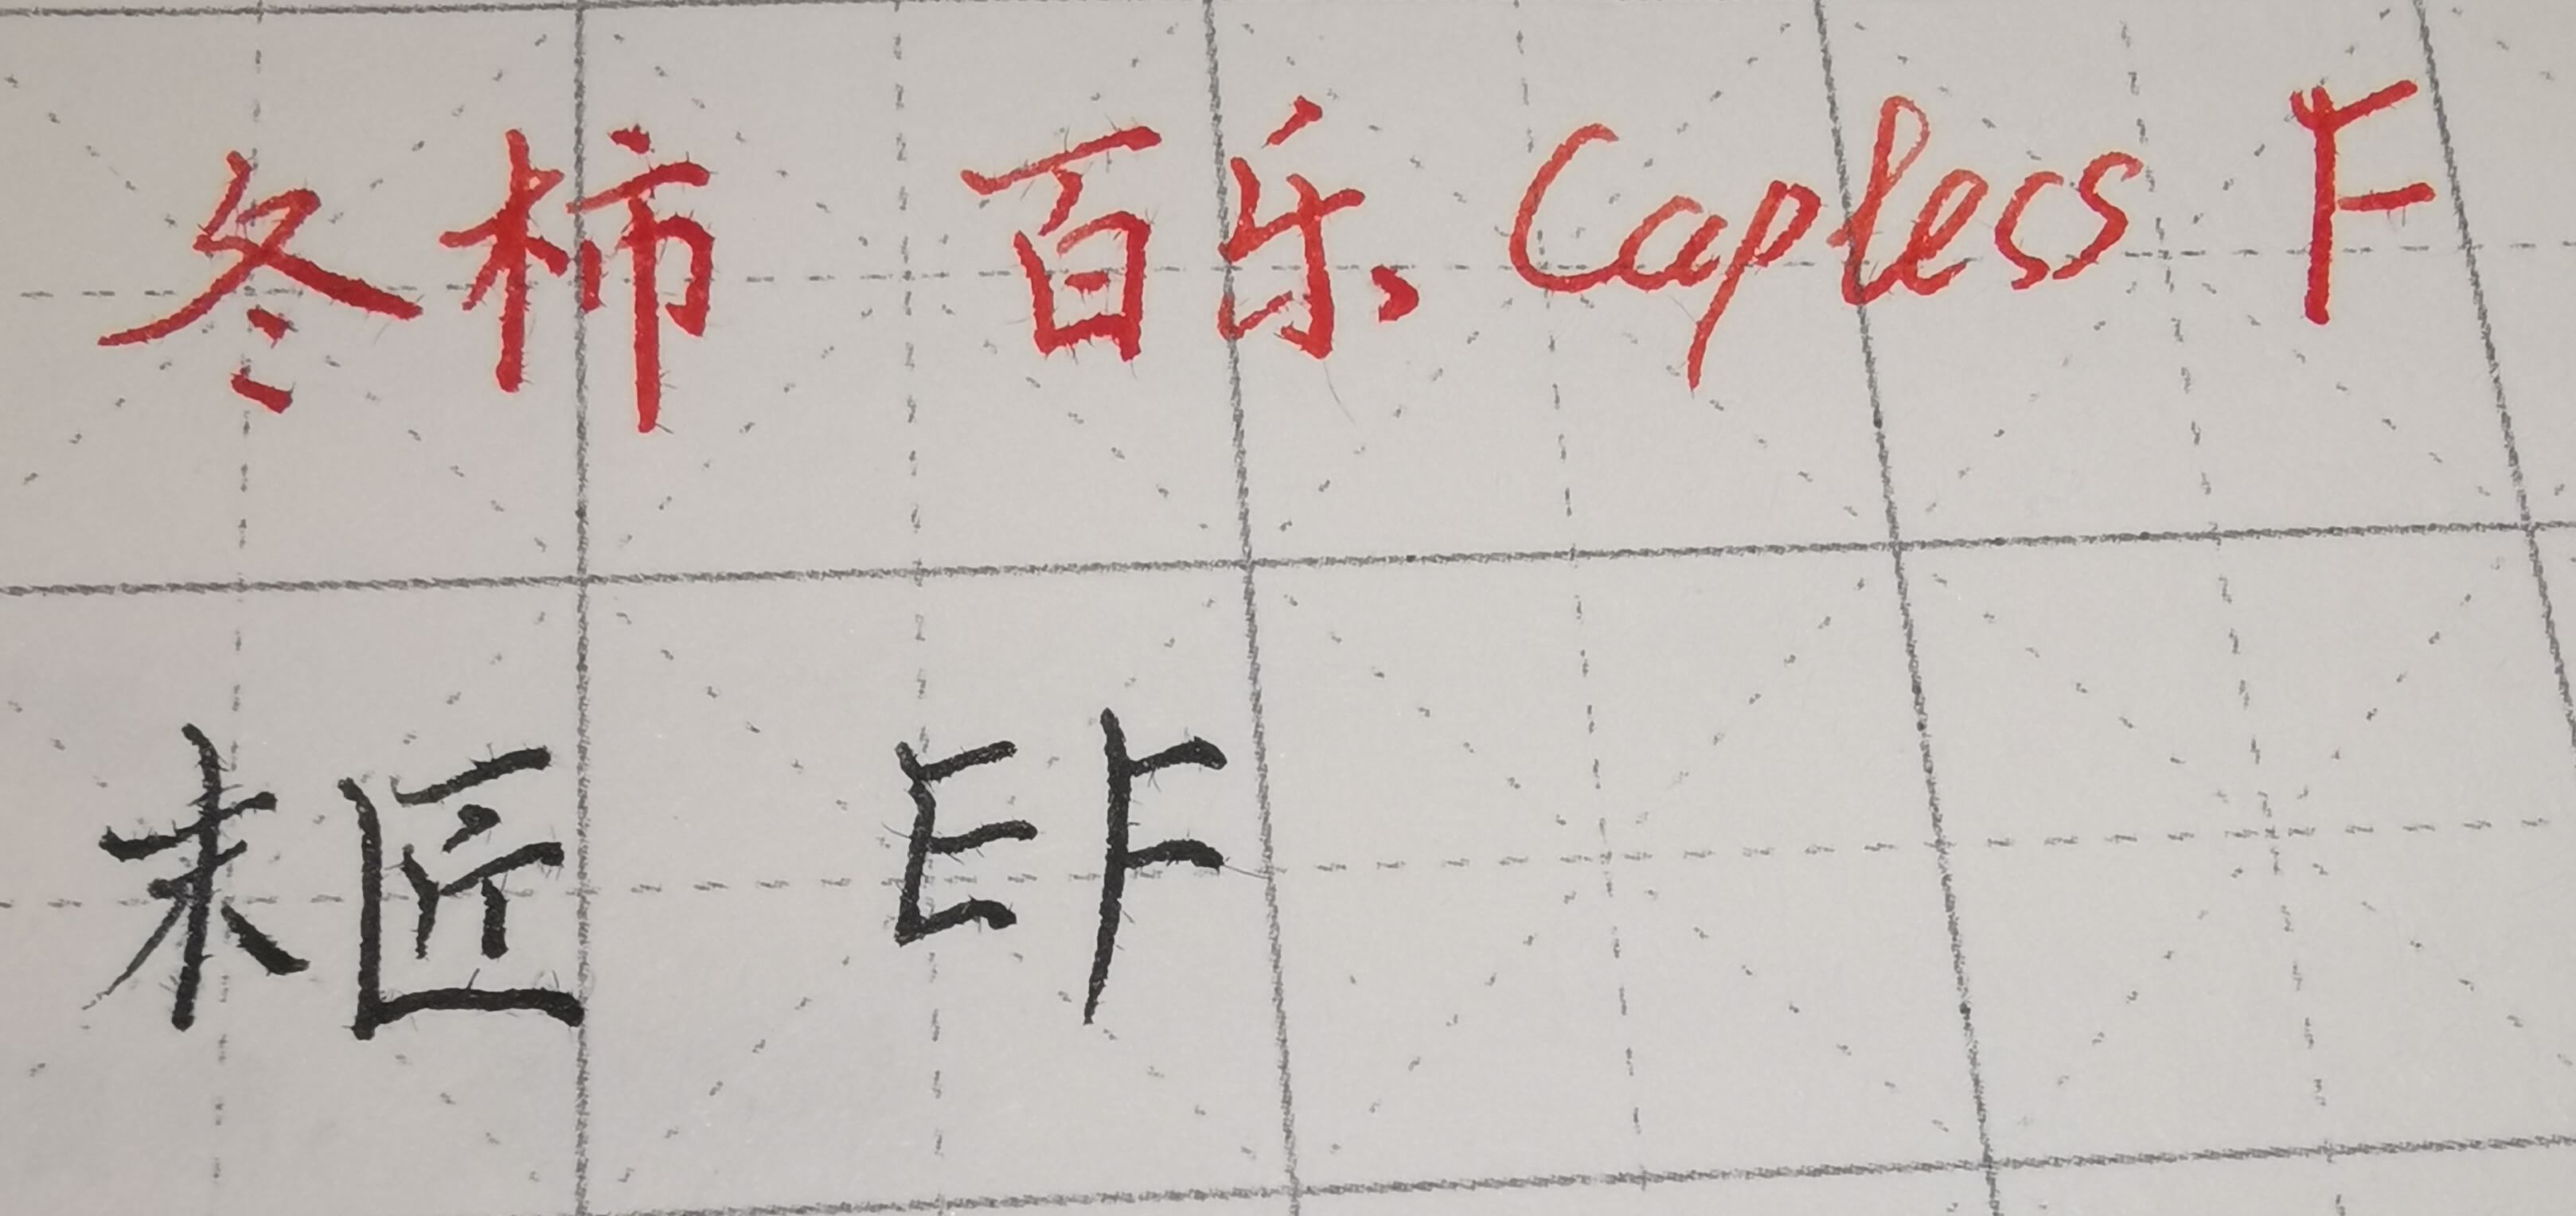 冬柿 百乐 Capless F
末匠 EF